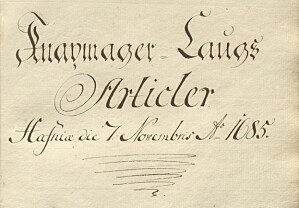 Knapmager-Laugs
Articler
Hafniæ die 7 Novembris Aº 1685.